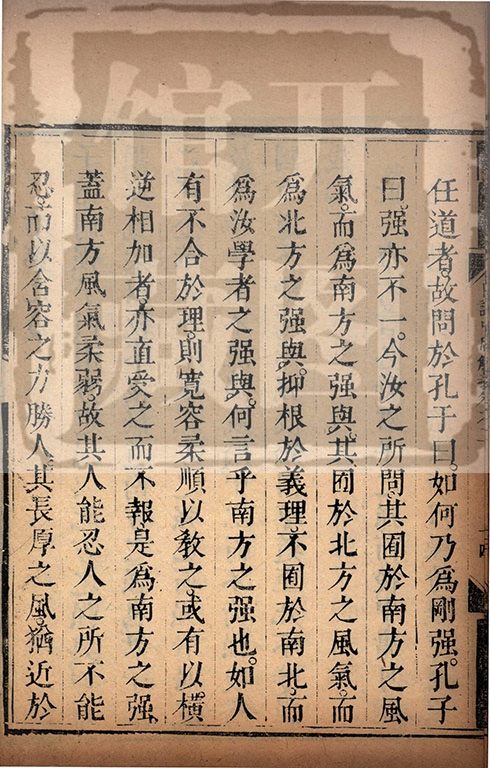 任道者故問於孔子曰。如何乃爲剛强。孔子
曰。强亦不一。今汝之所問。其囿於南方之風
氣。而爲南方之强與。其囿於北方之風氣。而
爲北方之强與。抑根於義理。不囿於南北。而
爲汝學者之强與。何言乎南方之强也。如人
有不合於理。則寬容柔順以敎之。或有以橫
逆相加者。亦直受之而不報。是爲南方之强。
蓋南方風氣柔弱。故其人能忍人之所不能
忍。而以含容之力勝人。其長厚之風。猶近於